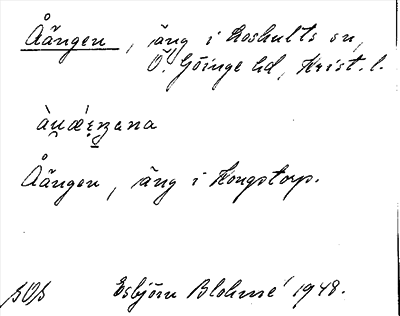 Åängen, äng i Loshults sn,
Ö. Göinge hd, Krist. l.
Åängen, äng i Kongstorp.
Esbjörn Blohmé 1948.